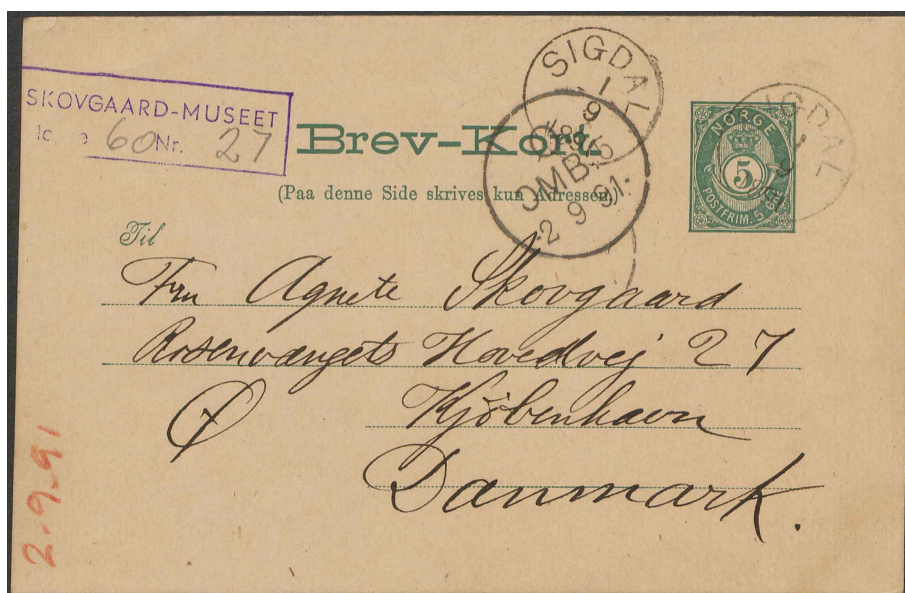 SKOVGAARD-MUSEET
60 Nr. 27
Brev-Kort
(Paa denne Side skrives kun Adressen.)
SIGDAL
1
9
OMB.5
2 9 91.
SIGDAL
NORGE
5
POSTFRIM. 5 ØRE
Til
Fru Agnete Skovgaard
Rosenvængets Hovedvej 27
Kjöbenhavn
Ø
Danmark.
2-9-91